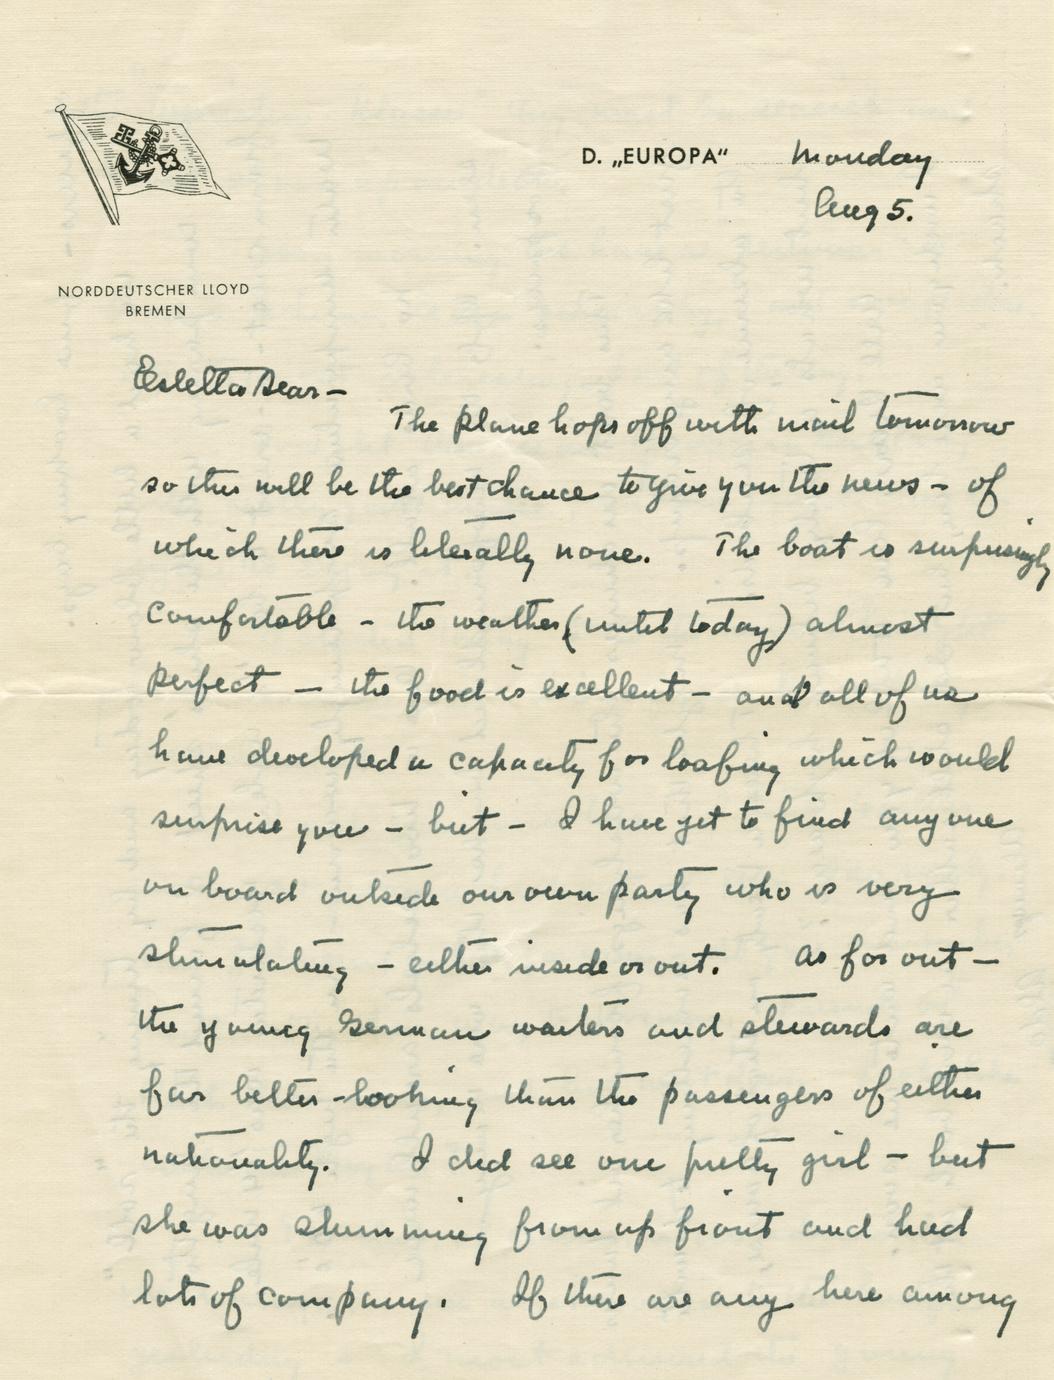 D. „EUROPA“ Monday
Aug 5.
NORDDEUTSCHER LLOYD
BREMEN
Esletta Dear —
The plane hops off with mail tomorrow
so this will be the best chance to give you the news – of
which there is literally none. The boat is surprisingly
comfortable – the weather (until today) almost
perfect — the food is excellent – and all of us
have developed a capacity for loafing which would
surprise you – but – I have yet to find anyone
on board outside our own party who is very
stimulating – either inside or out. As for out —
the young German waiters and stewards are
far better-looking than the passengers of either
nationality. I did see one pretty girl – but
she was slumming from up front and had
lots of company. If there are any here among